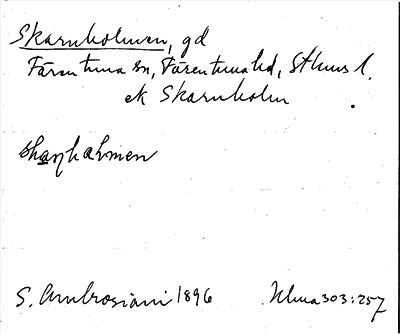 Skarnholmen, gd
Färentuna sn, Färentuna hd, Sthms l.
ek Skarnholm
skaɳhålmen
S. Ambrosiani 1896 Ulma 303:257